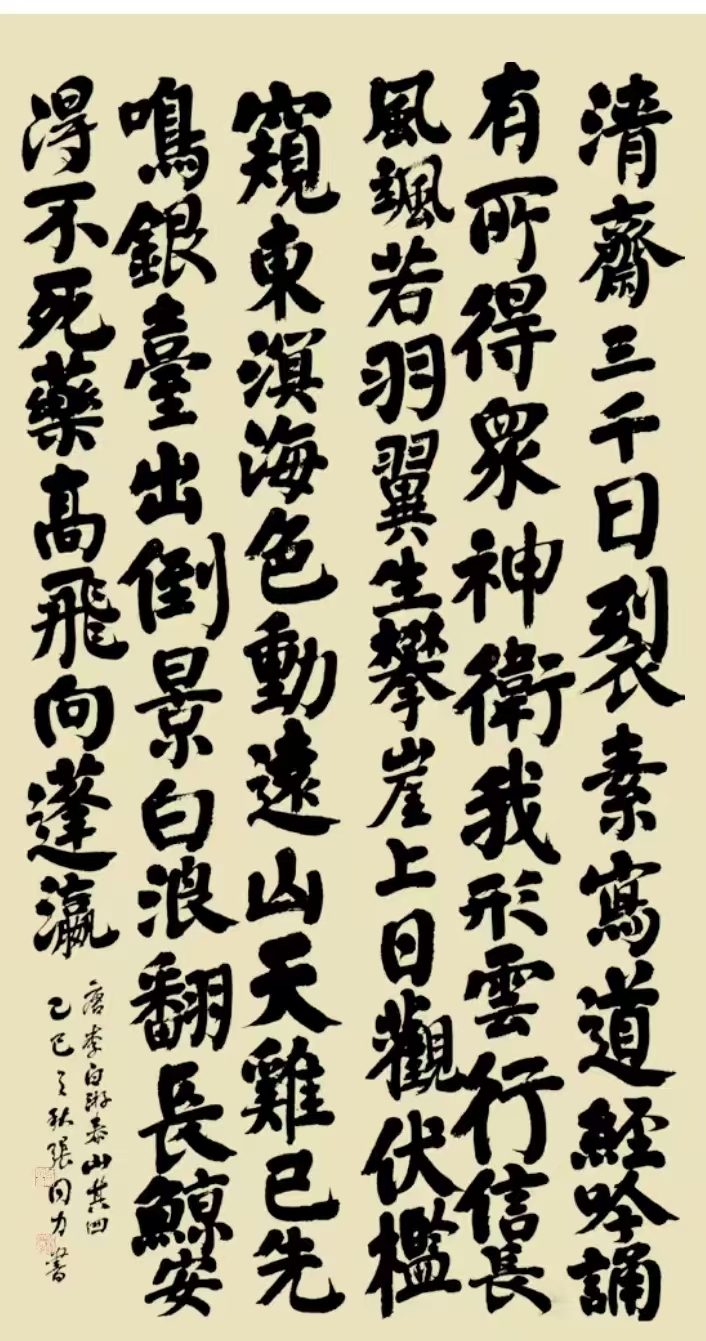 清齋三千日裂素寫道經吟誦
有所得眾神衛我形雲行信長
風颯若羽翼生攀崖上日觀伏檻
窺東溟海色動遠山天雞已先
鳴銀臺出倒景白浪翻長鯨安
得不死藥高飛向蓬瀛
唐李白游泰山其四
乙巳之秋張同力書